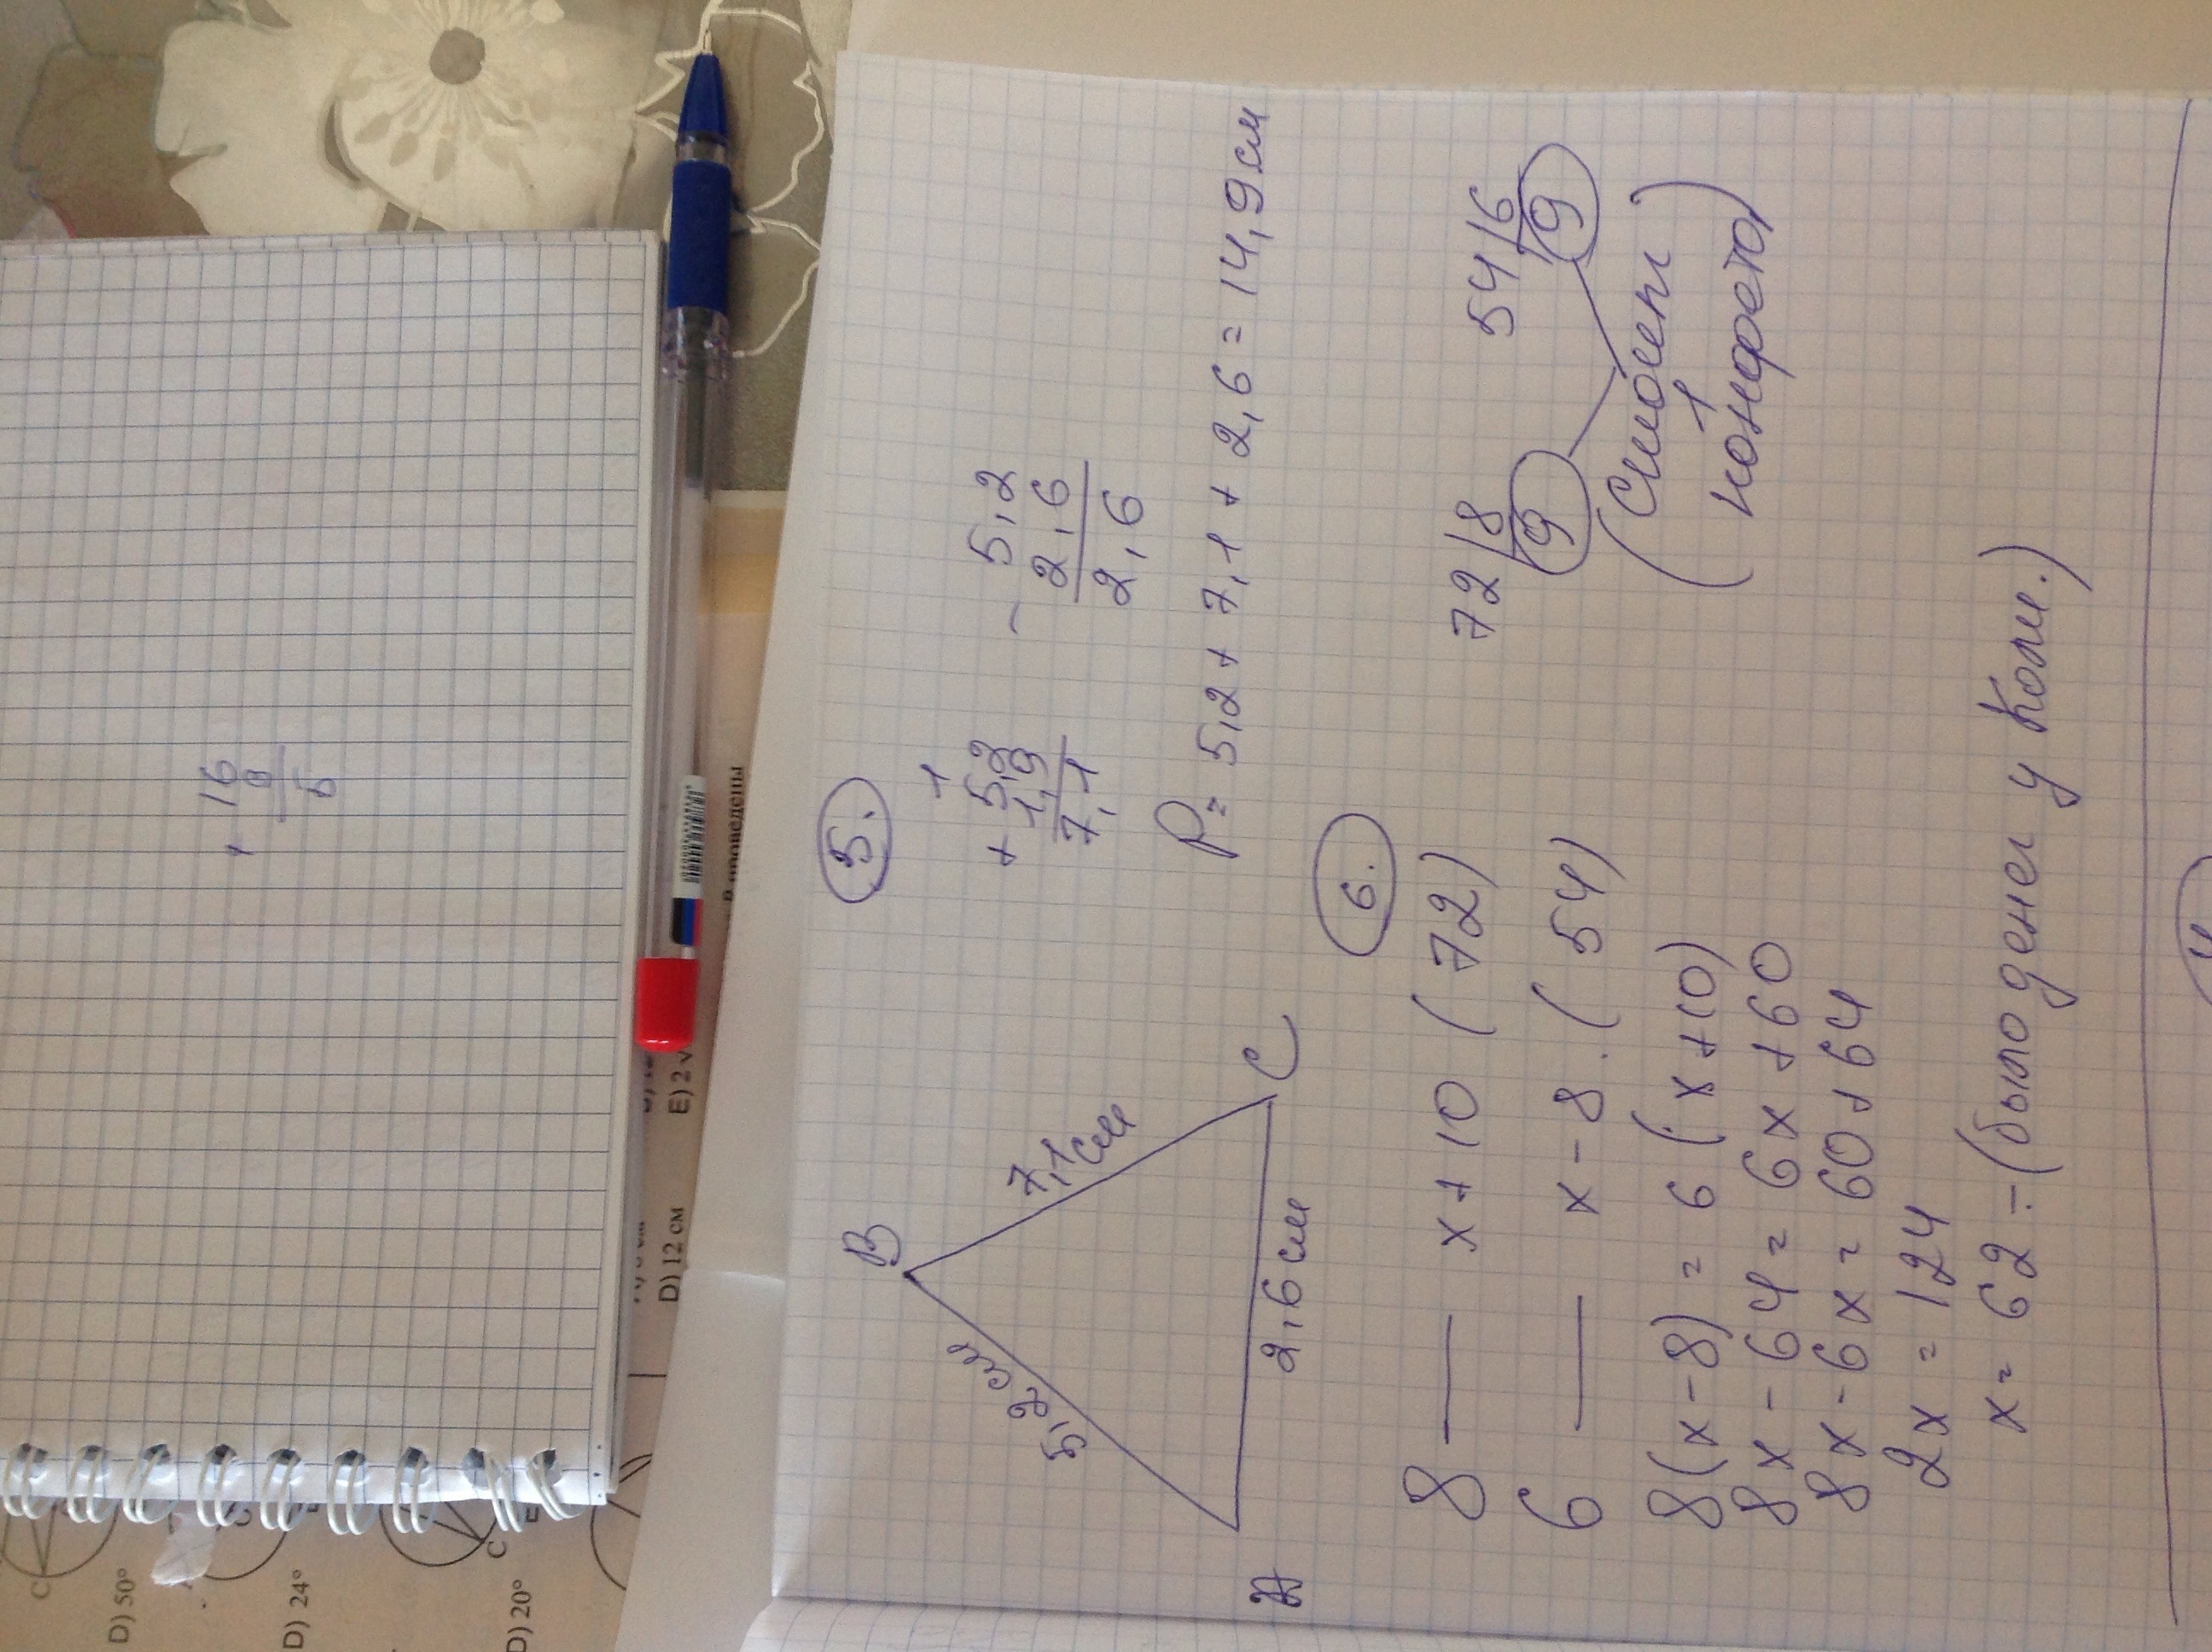 + 16
8
5.
B
5,2 см
7,1 см
C
2,6 см
1
+ 5,2
1,9
7,1
- 5,2
2,6
2,6
P = 5,2 + 7,1 + 2,6 = 14,9 см
6.
8 — x + 10 (72)
6 — x - 8. (54)
72 8
9
54 6
9
(Стоимость
1 конфеты)
8(x - 8) = 6(x + 10)
8x - 64 = 6x + 60
8x - 6x = 60 + 64
2x = 124
x = 62 - (было денег у Коли.)
D) 50°
C
D) 24°
D) 20°
C
D) 12 см
E) 2
проведены